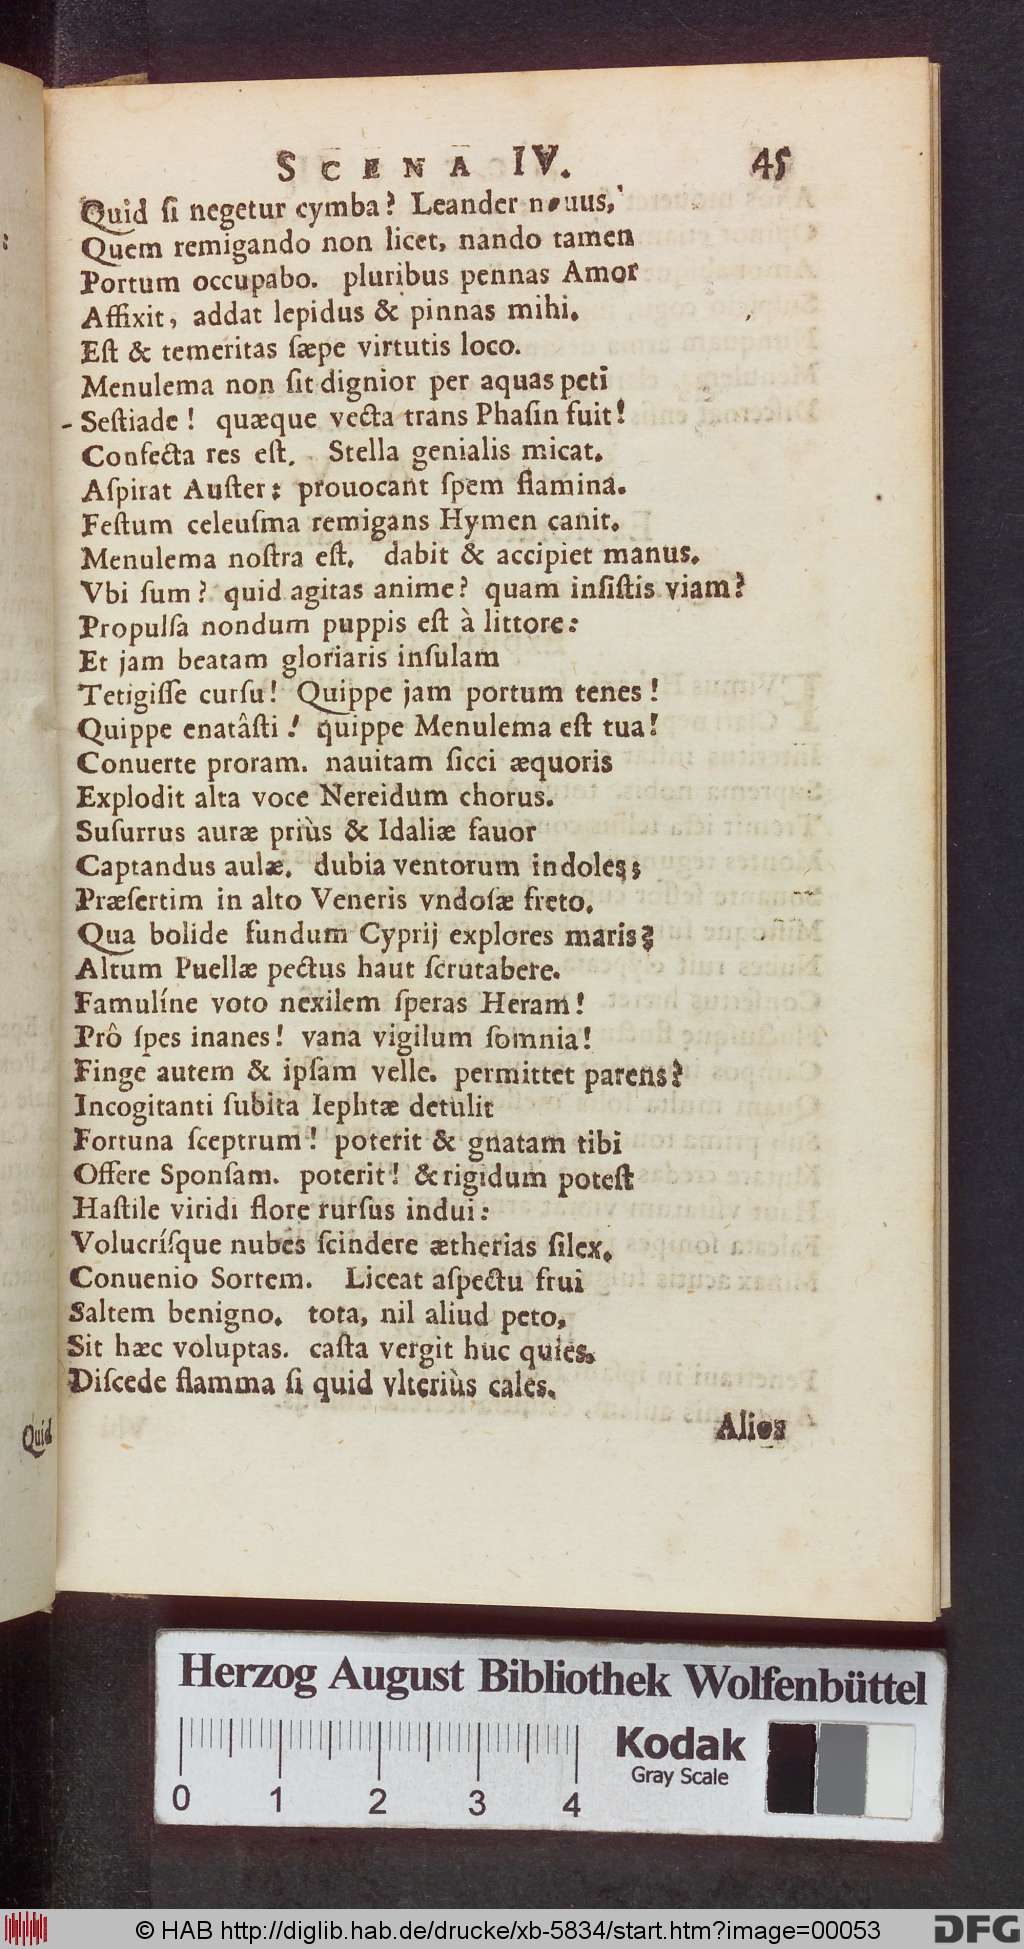 SCENA IV. 45
Quid ſi negetur cymba? Leander nouus,
Quem remigando non licet, nando tamen
Portum occupabo. pluribus pennas Amor
Affixit, addat lepidus & pinnas mihi.
Eſt & temeritas ſæpe virtutis loco.
Menulema non ſit dignior per aquas peti
Seſtiade! quæque vecta trans Phaſin fuit!
Confecta res eſt. Stella genialis micat.
Aſpirat Auſter: prouocant ſpem flamina.
Feſtum celeuſma remigans Hymen canit.
Menulema noſtra eſt. dabit & accipiet manus.
Vbi ſum? quid agitas anime? quam inſiſtis viam?
Propulſa nondum puppis eſt à littore:
Et jam beatam gloriaris inſulam
Tetigiſſe curſu! Quippe jam portum tenes!
Quippe enatâſti! quippe Menulema eſt tua!
Conuerte proram. nauitam ſicci æquoris
Explodit alta voce Nereidum chorus.
Suſurrus auræ priùs & Idaliæ fauor
Captandus aulæ. dubia ventorum indoles;
Præſertim in alto Veneris vndoſæ freto.
Qua bolide fundum Cyprij explores maris?
Altum Puellæ pectus haut ſcrutabere.
Famulíne voto nexilem ſperas Heram!
Prô ſpes inanes! vana vigilum ſomnia!
Finge autem & ipſam velle. permittet parens?
Incogitanti ſubita Iephtæ detulit
Fortuna ſceptrum! poterit & gnatam tibi
Offere Sponſam. poterit! & rigidum poteſt
Haſtile viridi flore rurſus indui:
Volucríſque nubes ſcindere ætherias ſilex.
Conuenio Sortem. Liceat aſpectu frui
Saltem benigno. tota, nil aliud peto,
Sit hæc voluptas. caſta vergit huc quies.
Diſcede flamma ſi quid vlteriùs cales.
Alios
Quid
Herzog August Bibliothek Wolfenbüttel
Kodak
Gray Scale
0 1 2 3 4
© HAB http://diglib.hab.de/drucke/xb-5834/start.htm?image=00053
DFG